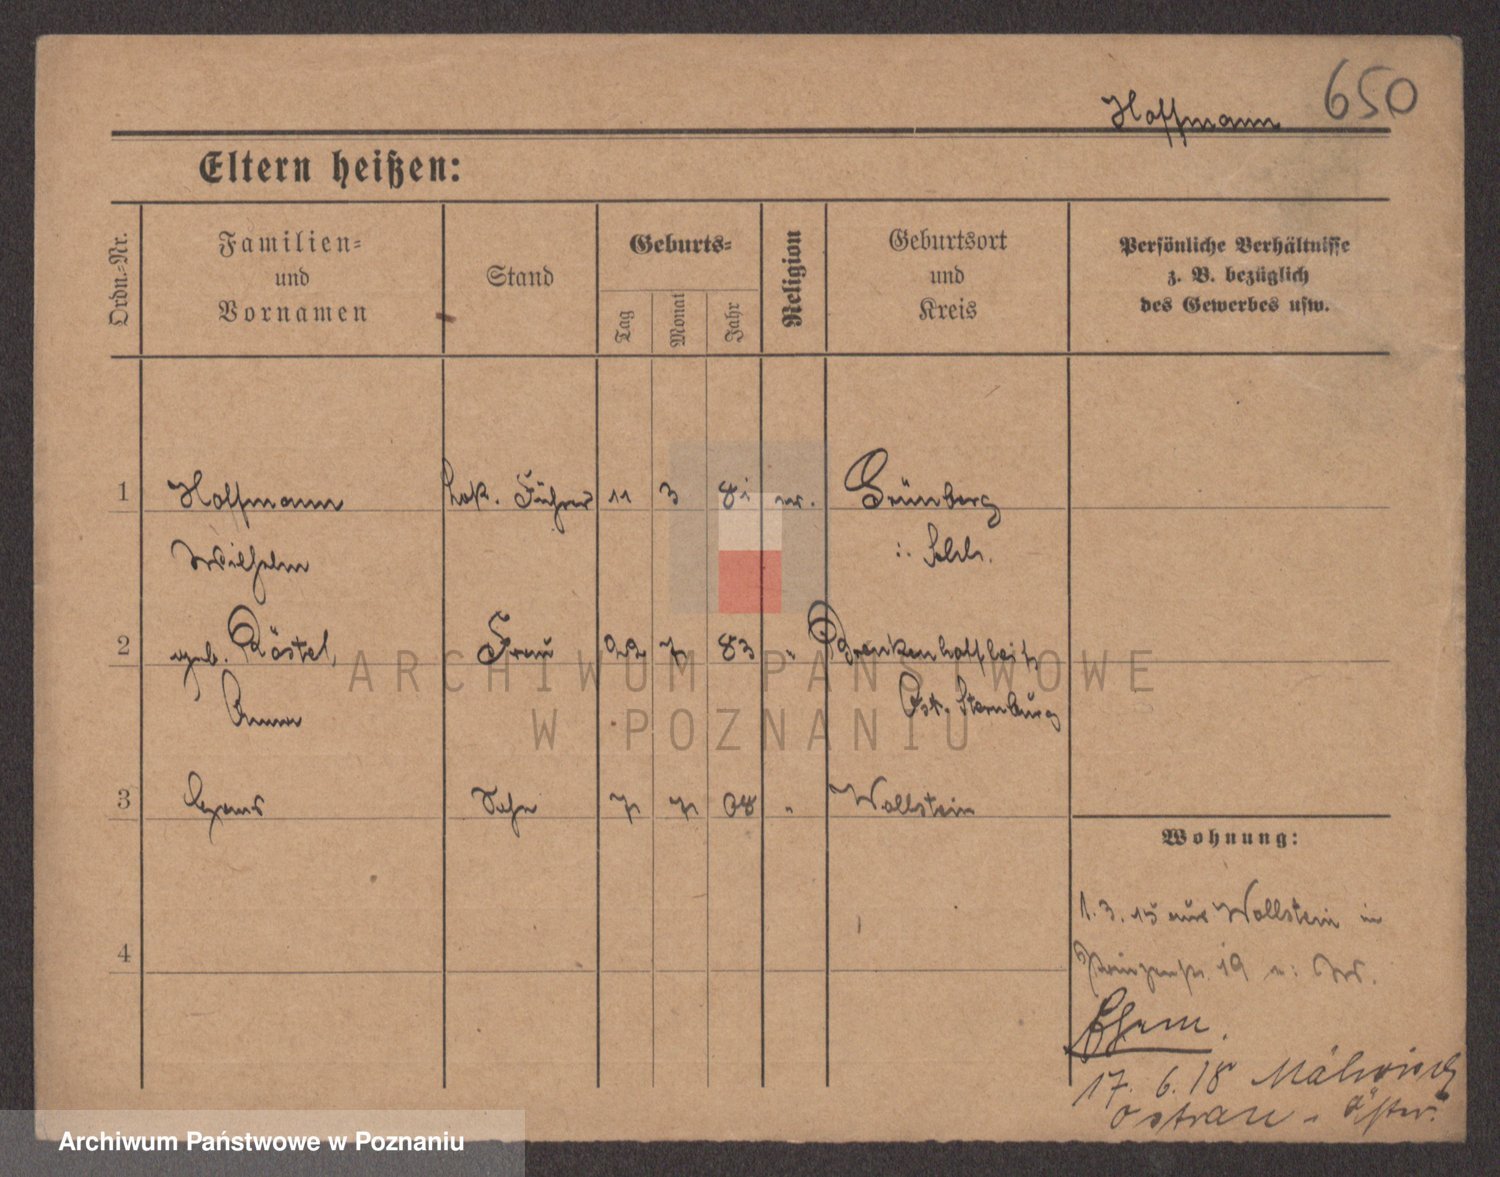 650
Hoffmann
Eltern heißen:
Ordn.-Nr.
Familien-
und
Vornamen
Stand
Geburts-
Tag
Monat
Jahr
Religion
Geburtsort
und
Kreis
Persönliche Verhältnisse
z. B. bezüglich
des Gewerbes usw.
1 Hoffmann Lok. Führer 11 3 81 ev. Grünberg
Wilhelm i. Schls.
2 geb. Röstel, Frau 22 7 83 "
Anna Ost. Sternburg
3 Sohn 7 7 08 " Wollstein
Wohnung:
1.3.15 aus Wollstein in
19
4
17. 6. 18 Mährisch
Ostrau - Östr.
ARCHIWUM PAŃSTWOWE
W POZNANIU
Archiwum Państwowe w Poznaniu